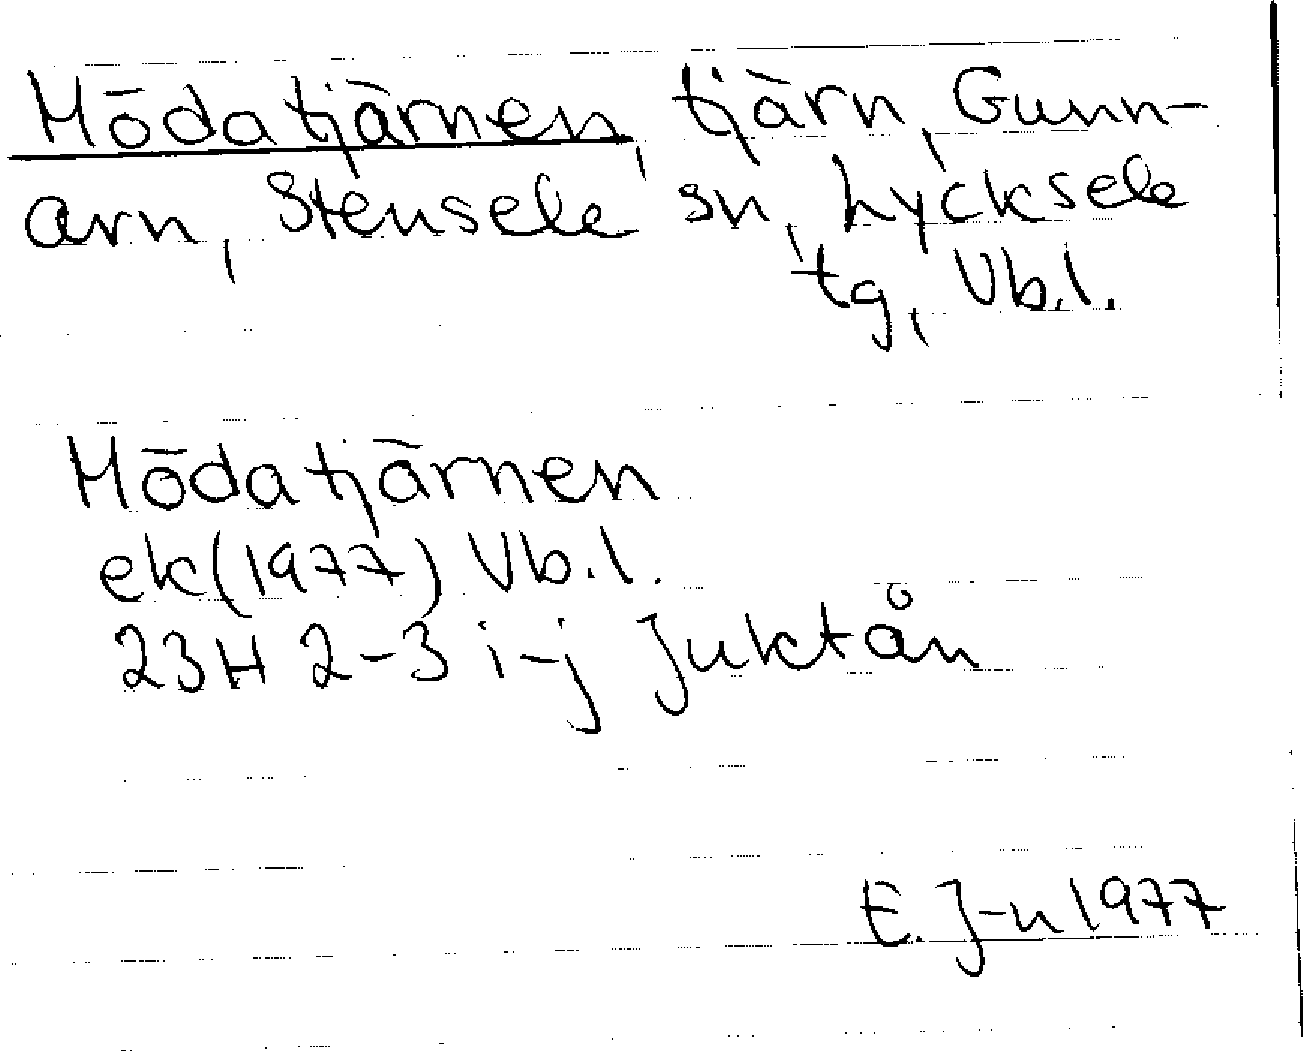 Mödatjärnen, tjärn, Gunn-
arn, Stensele sn, Lycksele
tg, Vb.l.
Mödatjärnen
ek(1977) Vb.l.
23H 2-3 i-j Juktån
E. J-n 1977